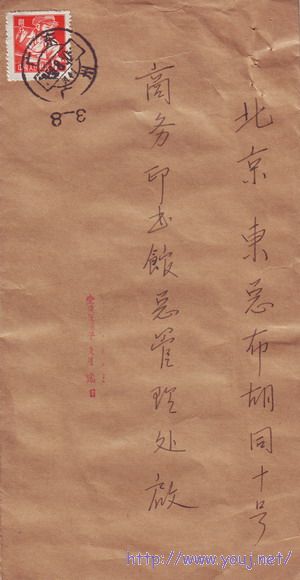 北京東总布胡同十号
商务印书館总管理处啟
3-8
http://www.youj.net/